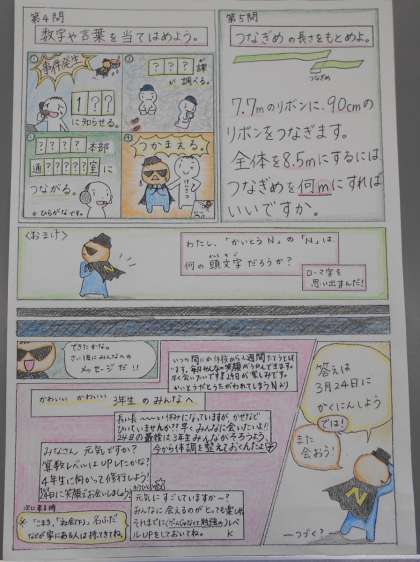 第4問
数字や言葉を当てはめよう。
①
事件発生
1??
に知らせる。
②
???課
が調べる。
③
????本部
通?????室に
つながる。
※ひらがなです。
④
つかまえる。
第5問
つなぎめの長さをもとめよ。
つなぎめ
7.7mのリボンに、90cmの
リボンをつなぎます。
全体を8.5mにするには、
つなぎめを何mにすれば
いいですか。
<おまけ>
わたし、「かいとうN」の「N」は、
何の頭文字だろうか?
ローマ字を
思い出すんだ!
できたかな。
さい後にみんなへの
メッセージだ!!
かわいい かわいい 3年生のみんなへ
長い長〜〜い休みになっていますが、かぜなど
ひいていませんか??早くみんなに会いたいよ!!
24日の最後は3年生みんながそろうよう、
今から体調を整えておくんだよ
みなさん 元気ですか?
算数レベルはUPしたかな?
4年生に向かって修行しよう!
24日に笑顔でお会いしましょう!
元気にすごしていますか〜?
みんなに会えるのがとっても楽しみ
レベル
UPをしておいてね。 K
「こまき」「ねお(下)」名ふだ
などが家にある人は持ってきてね。
答えは
3月24日に
かくにんしよう
では!
また
会おう!
N
―つづく?―